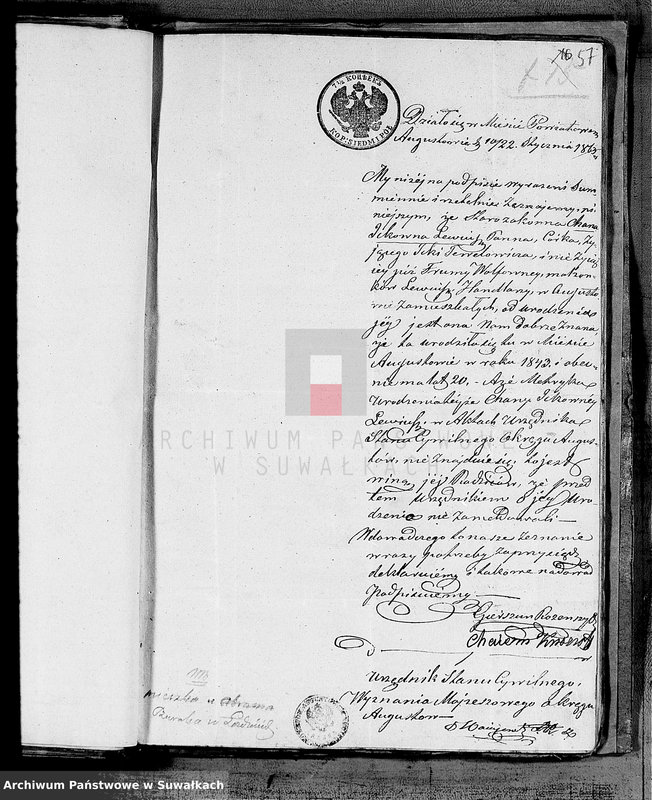 57
7½ КОПѢЕКЪ
KOP: SIEDM I PÓŁ
Działo się w Mieście Powiatowem
Augustowie d. 10/22 Stycznia 186
My niżéj na podpisie wyrażeni Sum
miennie i rzetelnie zeznajemy ni
niejszym, że Starozakonna Chana
Ickowna Lewins, Panna, Córka, ży
jącego Icki i nie żyją
céj już Frumy Wolfowney, małżon
ków Lewins, Handlarzy, w Augusto
wie zamieszkałych, od urodzenia
jéj jest ona Nam dobrze Znana
że ta urodziła się tu w Mieście
Augustowie w roku 1843 i obec
nie ma lat 20. - A że Metryka
Urodzenia téjże Chany Ickowney
Lewins, w Aktach Urzędnika
Stanu Cywilnego Okręgu Augus
tów, nie znajduje się, to jest
winą jéj Rodziców, że przed
tem Urzędnikiem o jéj Uro
dzeniu nie zameldowali —
W dowód czego to nasze zeznanie
w razie potrzeby zaprzysiądz
deklarujemy i takowe na dowód
podpisujemy —
Gierszun
Chaiem
Urzędnik Stanu Cywilnego,
Wyznania Mojżeszowego Okręgu
Augustow —
ARCHIWUM PAŃSTWOWE
W SUWAŁKACH
Archiwum Państwowe w Suwałkach